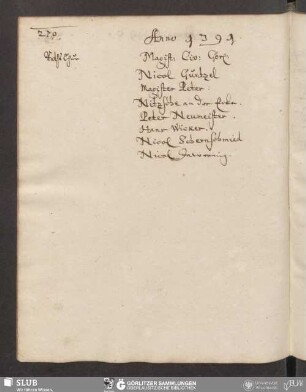 270.
Anno 1391.
Magist: Civ: Görl:
Nicol Güntzel
Magister Peter.
Nitzsche an der Ecke.
Peter Neumeister.
Hans Wicker.
Nicol Sebenschmied
Nicol
SLUB
Wir führen Wissen.
GÖRLITZER SAMMLUNGEN
OBERLAUSITZISCHE BIBLIOTHEK